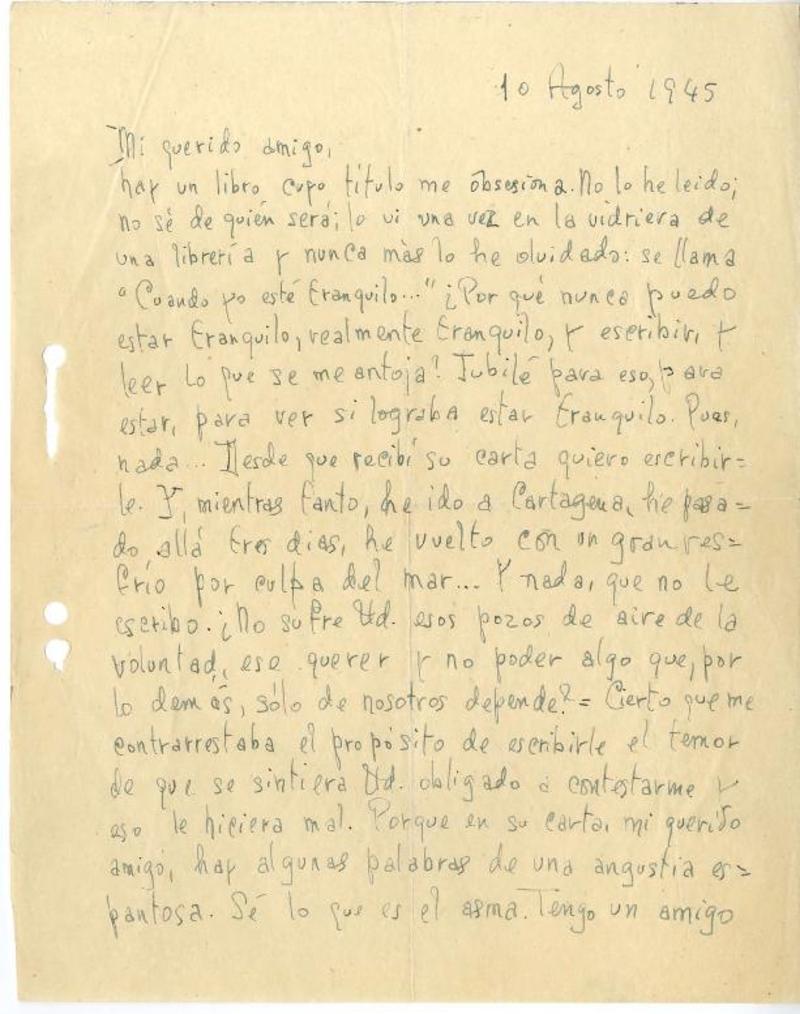 10 Agosto 1945
Mi querido amigo,
hay un libro cuyo título me obsesiona. No lo he leido;
no sé de quién será; lo vi una vez en la vidriera de
una librería y nunca más lo he olvidado: se llama
"Cuando yo esté tranquilo..." ¿Por qué nunca puedo
estar tranquilo, realmente tranquilo, y escribir, y
leer lo que se me antoja? Jubilé para eso, para
estar, para ver si lograba estar tranquilo. Pues,
nada... Desde que recibí su carta quiero escribir=
le. Y, mientras tanto, he ido a Cartagena, he pasa=
do allá tres dias, he vuelto con un gran res=
frío por culpa del mar... Y nada, que no le
escribo. ¿No sufre Ud. esos pozos de aire de la
voluntad, ese querer y no poder algo que, por
lo demás, sólo de nosotros depende? = Cierto que me
contrarrestaba el propósito de escribirle el temor
de que se sintiera Ud. obligado a contestarme y
eso le hiciera mal. Porque en su carta, mi querido
amigo, hay algunas palabras de una angustia es=
pantosa. Sé lo que es el asma. Tengo un amigo